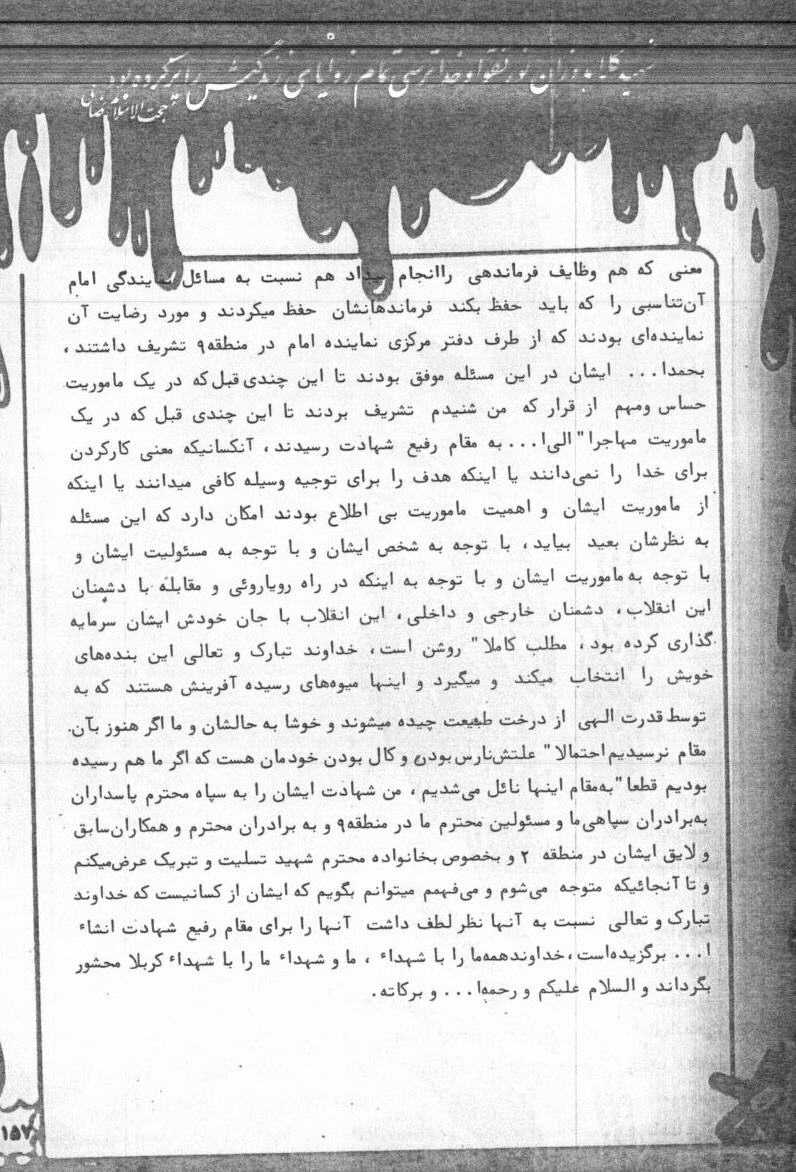 شهید کلاهدوزان نور تقوا و خداترسی تمام زوایای زندگیش را پر کرده بود
حجت‌الاسلام
معنی که هم وظایف فرماندهی راانجام میداد هم نسبت به مسائل نمایندگی امام
آن‌تناسبی را که باید حفظ بکند فرماندهانشان حفظ میکردند و مورد رضایت آن
نماینده‌ای بودند که از طرف دفتر مرکزی نماینده امام در منطقه۹ تشریف داشتند،
بحمدا... ایشان در این مسئله موفق بودند تا این چندی قبل‌که در یک ماموریت
حساس ومهم از قرار که من شنیدم تشریف بردند تا این چندی قبل که در یک
ماموریت مهاجرا" الی‌ا... به مقام رفیع شهادت رسیدند، آنکسانیکه معنی کارکردن
برای خدا را نمی‌دانند یا اینکه هدف را برای توجیه وسیله کافی میدانند یا اینکه
از ماموریت ایشان و اهمیت ماموریت بی اطلاع بودند امکان دارد که این مسئله
به نظرشان بعید بیاید، با توجه به شخص ایشان و با توجه به مسئولیت ایشان و
با توجه به‌ماموریت ایشان و با توجه به اینکه در راه رویاروئی و مقابله با دشمنان
این انقلاب، دشمنان خارجی و داخلی، این انقلاب با جان خودش ایشان سرمایه
گذاری کرده بود، مطلب کاملا" روشن است، خداوند تبارک و تعالی این بنده‌های
خویش را انتخاب میکند و میگیرد و اینها میوه‌های رسیده آفرینش هستند که به
توسط قدرت الهی از درخت طبیعت چیده میشوند و خوشا به حالشان و ما اگر هنوز بآن
مقام نرسیدیم احتمالا" علتش‌نارس‌بودن و کال بودن خودمان هست که اگر ما هم رسیده
بودیم قطعا" به‌مقام اینها نائل می‌شدیم، من شهادت ایشان را به سپاه محترم پاسداران
به‌برادران سپاهی‌ما و مسئولین محترم ما در منطقه۹ و به برادران محترم و همکاران‌سابق
و لایق ایشان در منطقه ۲ و بخصوص بخانواده محترم شهید تسلیت و تبریک عرض‌میکنم
و تا آنجائیکه متوجه می‌شوم و می‌فهمم میتوانم بگویم که ایشان از کسانیست که خداوند
تبارک و تعالی نسبت به آنها نظر لطف داشت آنها را برای مقام رفیع شهادت انشاء
ا... برگزیده‌است، خداوندهمه‌ما را با شهداء، ما و شهداء ما را با شهداء کربلا محشور
بگرداند و السلام علیکم و رحمه‌ا... و برکاته.
۱۵۷